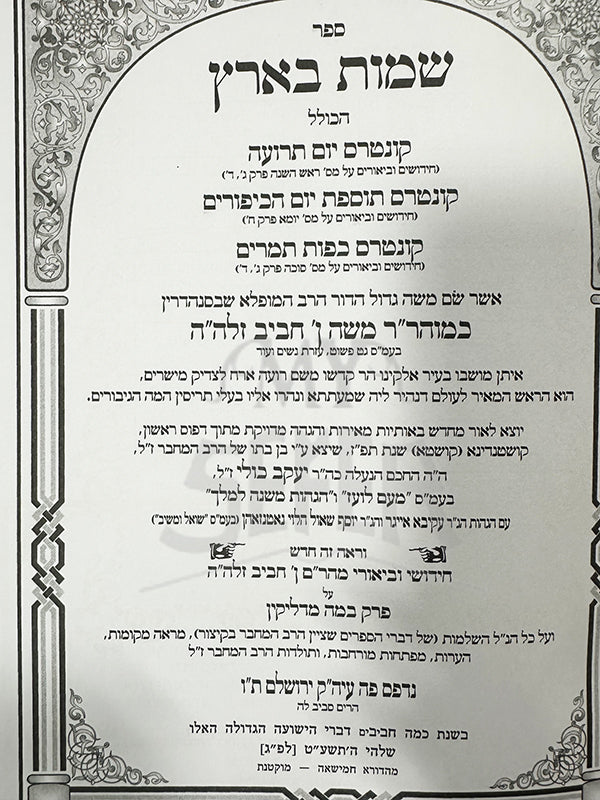 ספר
שמות בארץ
הכולל
קונטרס יום תרועה
(חידושים וביאורים על מס' ראש השנה פרק ג', ד')
קונטרס תוספת יום הכיפורים
(חידושים וביאורים על מס' יומא פרק ח')
קונטרס כפות תמרים
(חידושים וביאורים על מס' סוכה פרק ג', ד')
אשר שׂם משה גדול הדור הרב המופלא שבסנהדרין
כמוהר"ר משה ן' חביב זלה"ה
בעמ"ס גט פשוט, עזרת נשים ועוד
איתן מושבו בעיר אלקינו הר קדשו משם רועה ארח לצדיק מישרים,
הוא הראש המאיר לעולם דנהיר ליה שמעתתא ונהרו אליו בעלי תריסין המה הגיבורים.
יוצא לאור מחדש באותיות מאירות והגהה מדויקת מתוך דפוס ראשון,
קושטנדינא (קושטא) שנת תפ"ז, שיצא ע"י בן בתו של הרב המחבר ז"ל,
ה"ה החכם הנעלה כה"ר יעקב כולי ז"ל,
בעמ"ס "מעם לועז" ו"הגהות משנה למלך"
עם הגהות הג"ר עקיבא אייגר והג"ר יוסף שאול הלוי נאטנזאהן (בעמ"ס "שואל ומשיב")
וראה זה חדש
חידושי וביאורי מהר"ם ן' חביב זלה"ה
על
פרק במה מדליקין
ועל כל הנ"ל השלמות (של דברי הספרים שציין הרב המחבר בקיצור), מראה מקומות,
הערות, מפתחות מורחבות, ותולדות הרב המחבר ז"ל
נדפס פה עיה"ק ירושלם ת"ו
הרים סביב לה
בשנת כמה חביבים דברי הישועה הגדולה האלו
שלהי ה'תשע"ט [לפ"ג]
מהדורא חמישאה – מוקטנת
MY